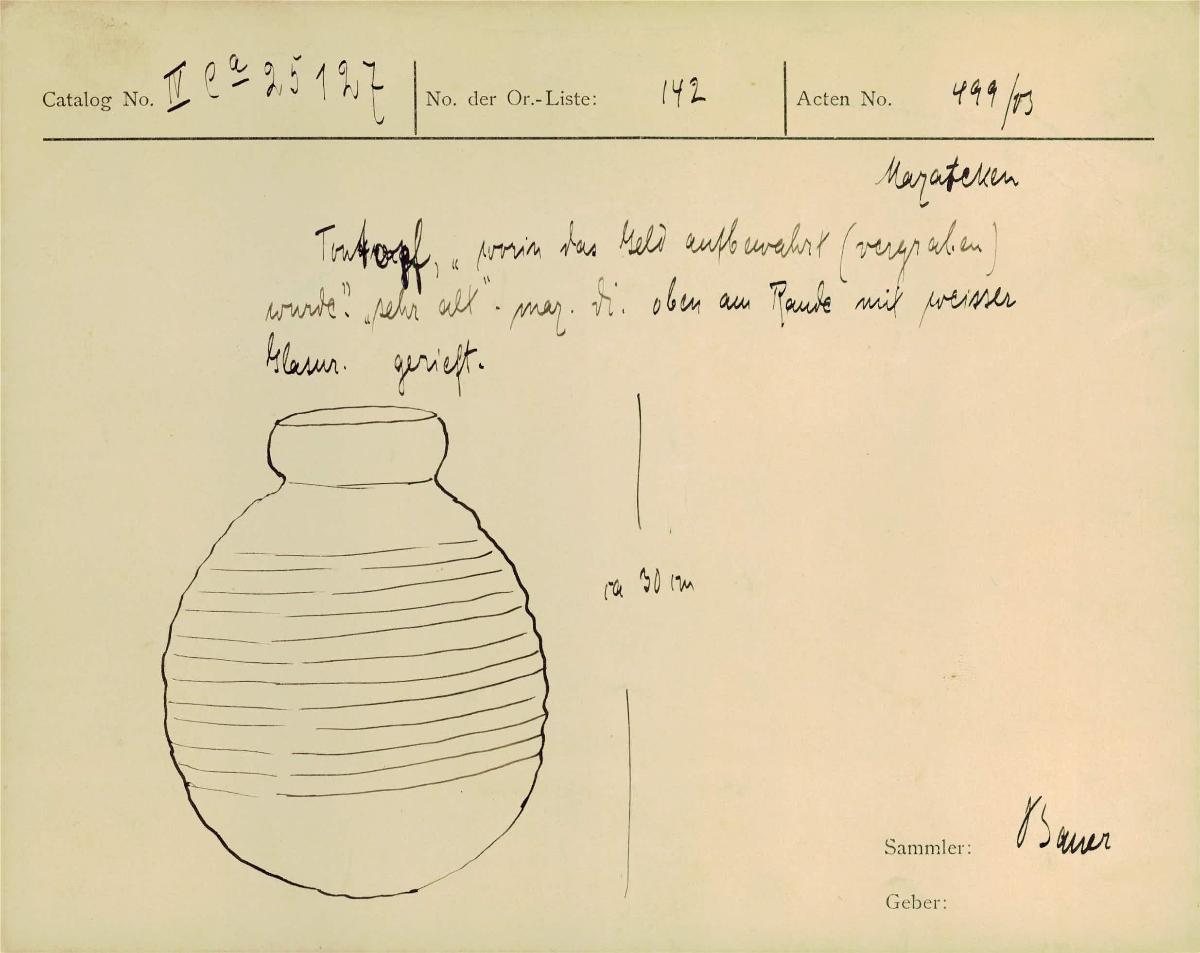 Catalog No. IV Ca 25127 No. der Or.-Liste: 142 Acten No. 499/03
Mazateken
Tontopf, „worin das Geld aufbewahrt (vergraben)
wurde". „sehr alt". maz. di. oben am Rande mit weisser
Glasur. gerieft.
ca 30 cm
Sammler: Bauer
Geber: